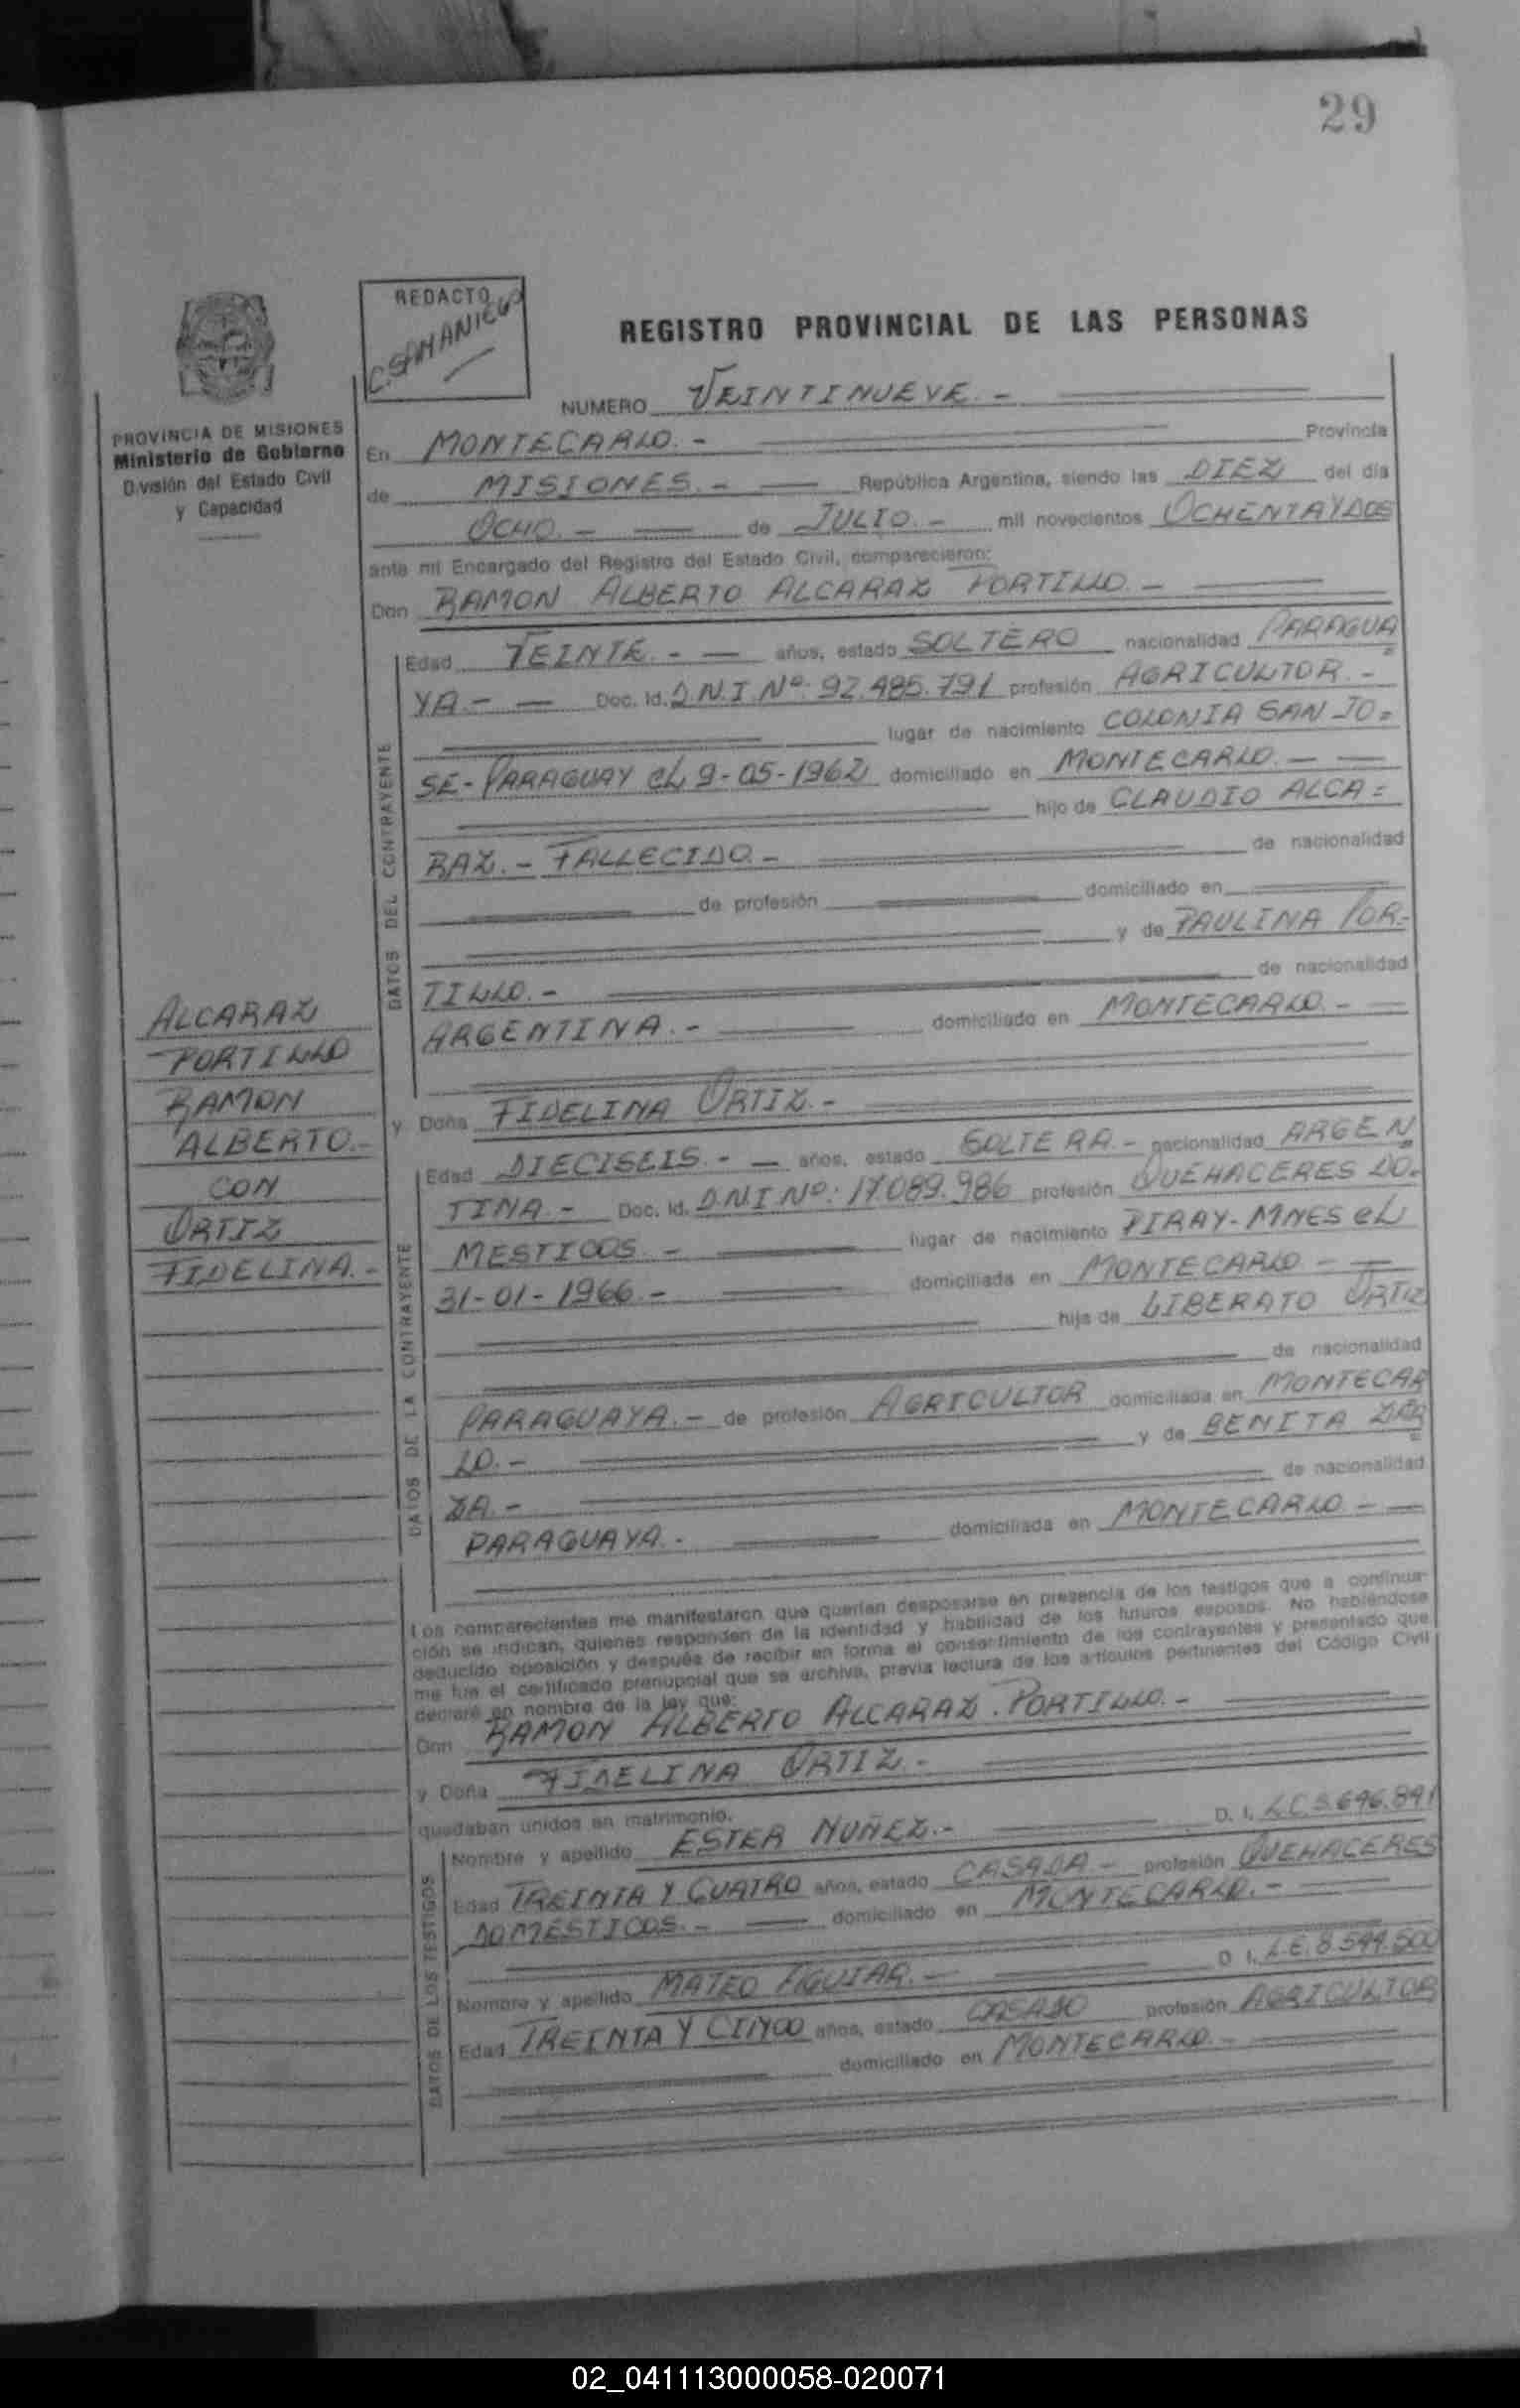 29
REDACTO
C. SAMANIEGO
REGISTRO PROVINCIAL DE LAS PERSONAS
NUMERO VEINTINUEVE.-
PROVINCIA DE MISIONES
Ministerio de Gobierno
División del Estado Civil
y Capacidad
En MONTECARLO.- Provincia
de MISIONES.- República Argentina, siendo las DIEZ del día
OCHO.- de JULIO.- mil novecientos OCHENTAYDOS
ante mi Encargado del Registro del Estado Civil, comparecieron:
Don RAMON ALBERTO ALCARAZ PORTILLO.-
DATOS DEL CONTRAYENTE
Edad VEINTE.- años, estado SOLTERO nacionalidad PARAGUA=
YA.- Doc. Id. D.N.I.Nº: 92.485.791 profesión AGRICULTOR.-
lugar de nacimiento COLONIA SAN JO=
SE-PARAGUAY eL 9-05-1962 domiciliado en MONTECARLO.-
hijo de CLAUDIO ALCA=
RAZ.- FALLECIDO.- de nacionalidad
de profesión domiciliado en
y de PAULINA POR-
TILLO.- de nacionalidad
ARGENTINA.- domiciliado en MONTECARLO.-
ALCARAZ
PORTILLO
RAMON
ALBERTO.-
CON
ORTIZ
FIDELINA.-
y Doña FIDELINA ORTIZ.-
DATOS DE LA CONTRAYENTE
Edad DIECISEIS.- años, estado SOLTERA.- nacionalidad ARGEN=
TINA.- Doc. Id. D.N.I Nº: 17.089.986 profesión QUEHACERES DO-
MESTICOS.- lugar de nacimiento PIRAY-MNES eL
31-01-1966.- domiciliada en MONTECARLO.-
hija de LIBERATO ORTIZ
de nacionalidad
PARAGUAYA.- de profesión AGRICULTOR domiciliada en MONTECAR
LO.- y de BENITA
ZA.- de nacionalidad
PARAGUAYA.- domiciliada en MONTECARLO.-
Los comparecientes me manifestaron que querían desposarse en presencia de los testigos que a continua-
ción se indican, quienes responden de la identidad y habilidad de los futuros esposos. No habiéndose
deducido oposición y después de recibir en forma el consentimiento de los contrayentes y presentado que
me fue el certificado prenupcial que se archiva, previa lectura de los artículos pertinentes del Código Civil
declaré en nombre de la ley que:
Don RAMON ALBERTO ALCARAZ.PORTILLO.-
y Doña FIDELINA ORTIZ.-
quedaban unidos en matrimonio.
DATOS DE LOS TESTIGOS
Nombre y apellido ESTER NUÑEZ.- D. I. L.C 5.696.891
Edad TREINTA Y CUATRO años, estado CASADA.- profesión QUEHACERES
DOMESTICOS.- domiciliado en MONTECARLO.-
Nombre y apellido MATEO AGUIAR.- D. I. L.E. 8.544.500
Edad TREINTA Y CINCO años, estado CASADO profesión AGRICULTOR
domiciliado en MONTECARLO.-
02_041113000058-020071